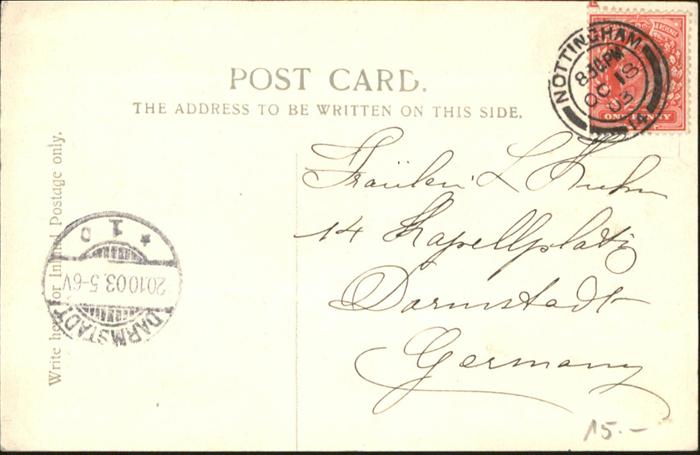 POST CARD.
THE ADDRESS TO BE WRITTEN ON THIS SIDE.
Write here for Inland Postage only.
NOTTINGHAM
8.30 PM
OC 18
03
ONE PENNY
DARMSTADT
20.10.03. 5-6V
* 1 c
Fräulein L Kuhn
14 Kapellplatz
Darmstadt
Germany
15.-